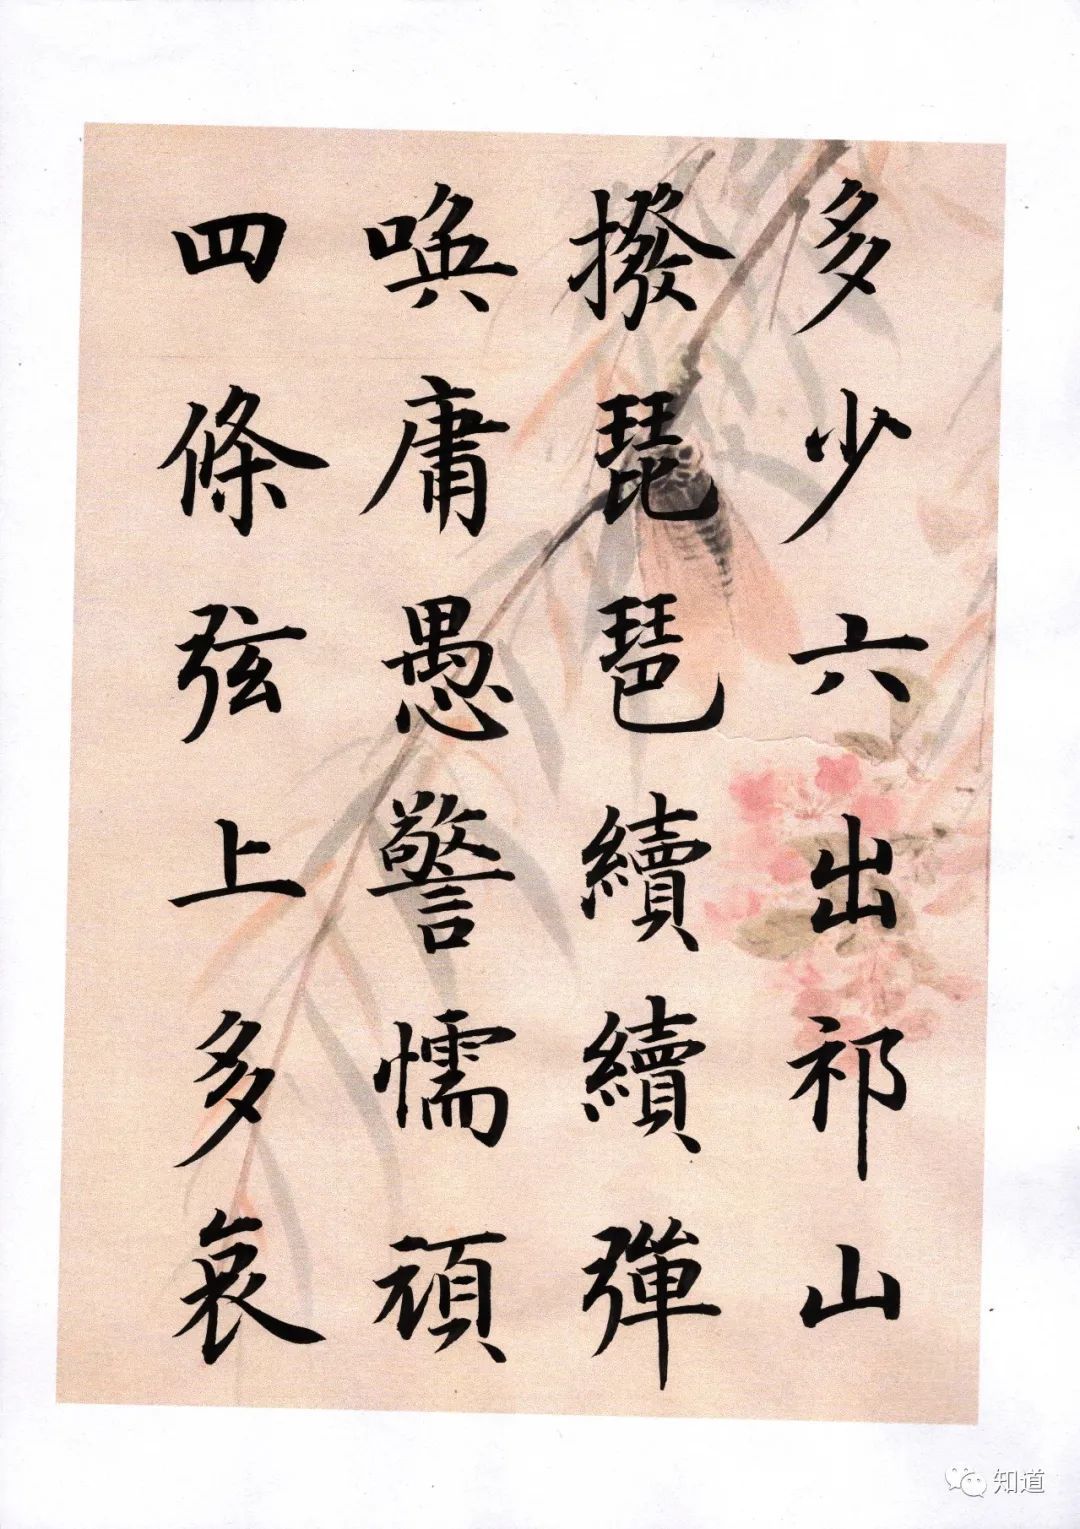 多少六出祁山
撥琵琶續續彈
喚庸愚警懦頑
四條弦上多哀
知道